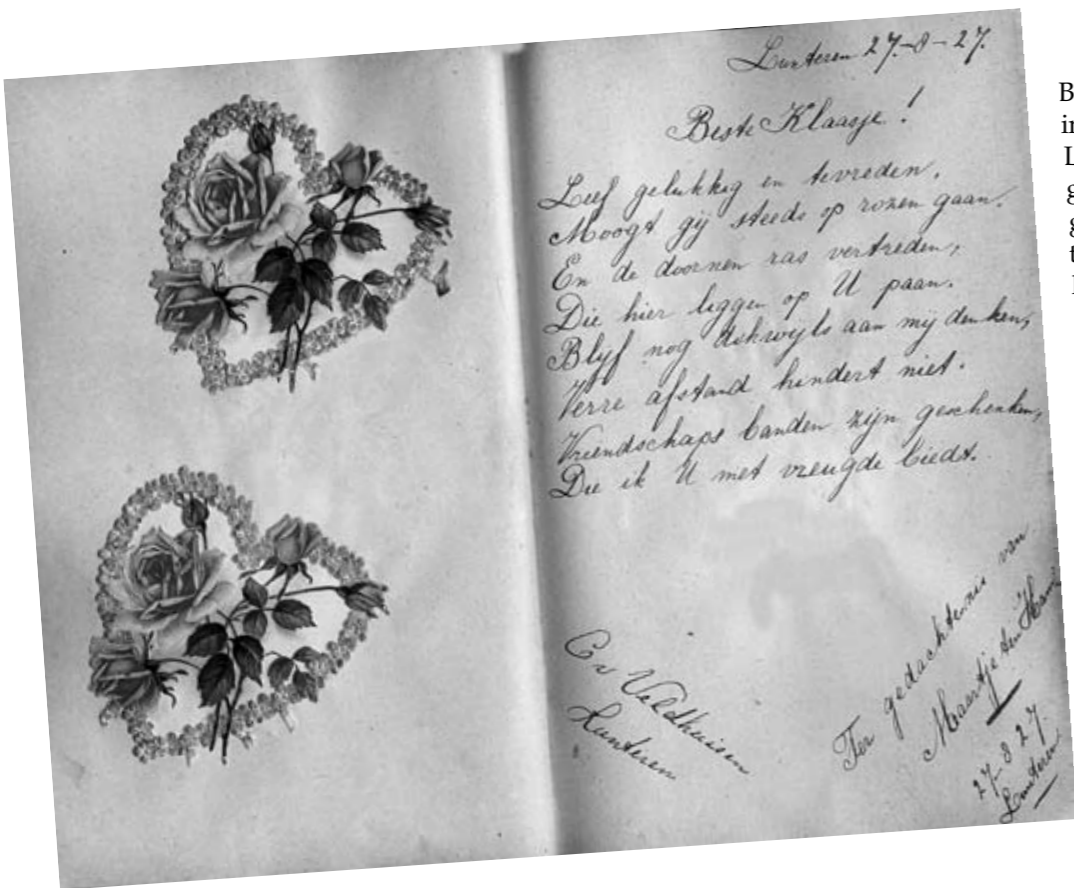 Lunteren 27-8-27.
Beste Klaasje!
Leef gelukkig en tevreden,
Moogt gij steeds op rozen gaan.
En de doornen ras vertreden,
Die hier liggen op U paan.
Blijf nog dikwijls aan mij denken,
Verre afstand hindert niet.
Vriendschaps banden zijn geschenken,
Die ik U met vreugde biedt.
C v Veldhuisen
Lunteren
Ter gedachtenis van
Maartje den
27-8 27.
Lunteren